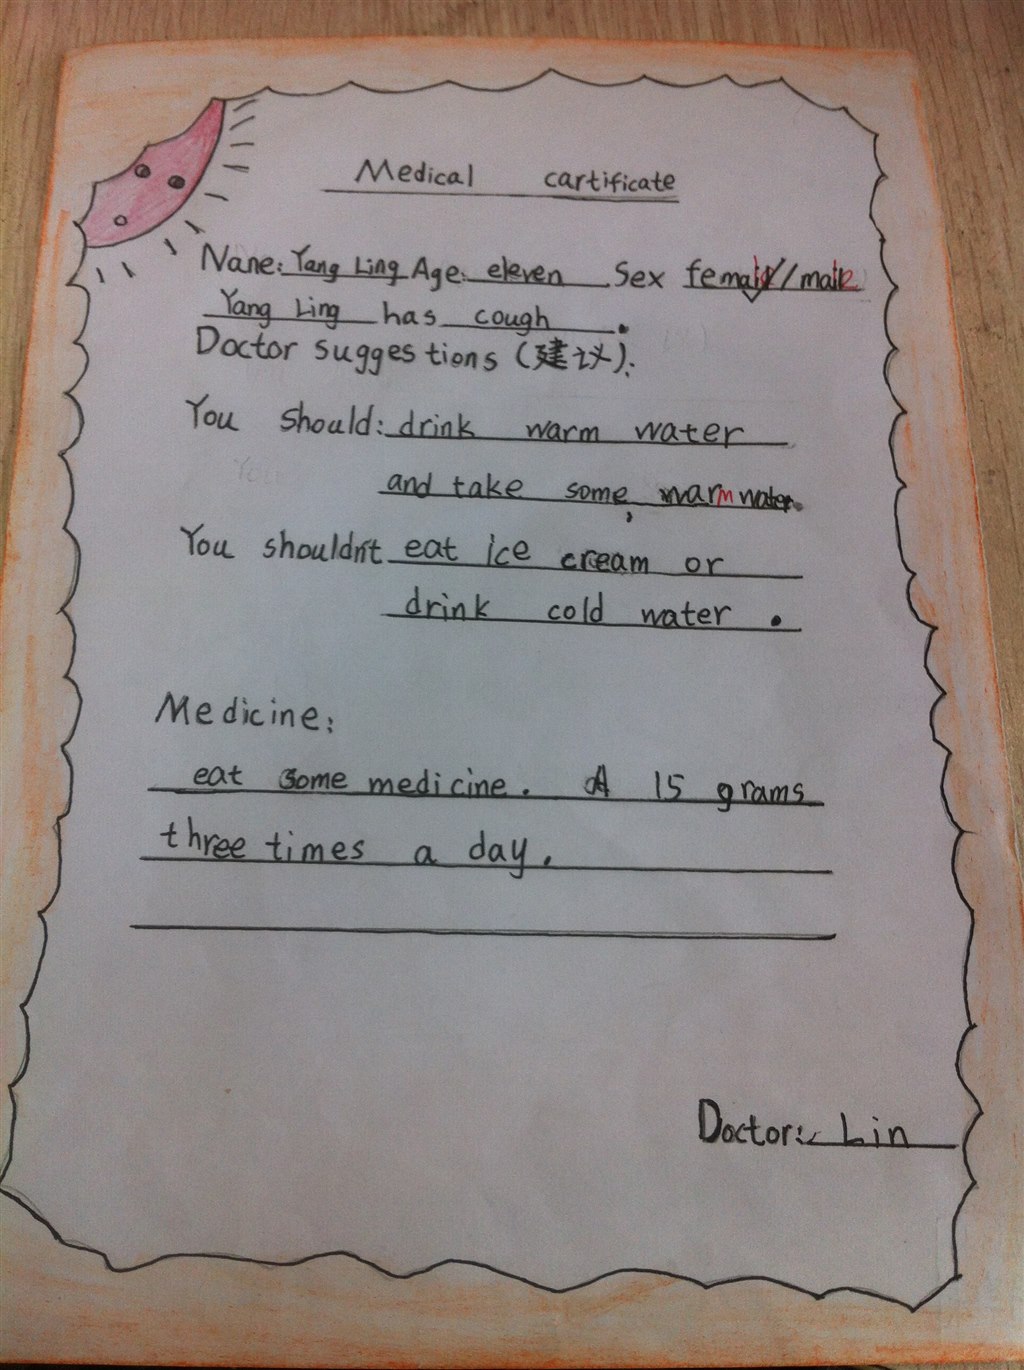 Medical cartificate
Nane: Yang Ling Age: eleven Sex female/male
Yang Ling has cough.
Doctor suggestions (建议):
You should: drink warm water
and take some, warm water.
You shouldn't eat ice cream or
drink cold water.
Medicine:
eat some medicine. A 15 grams
three times a day.
Doctor: Lin